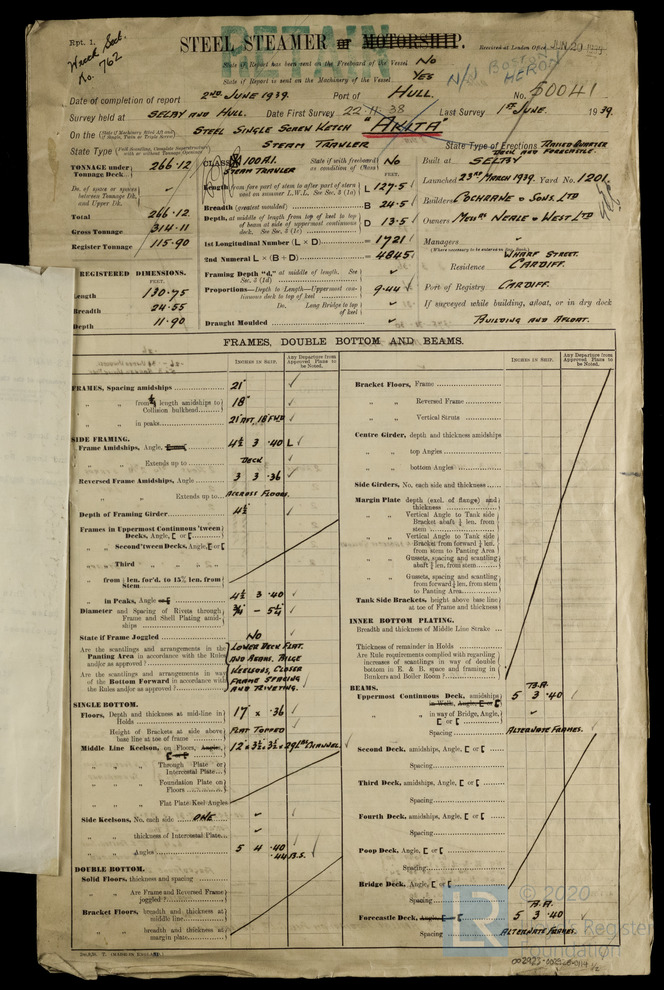 Rpt. 1.
Wreck Sect.
No. 762
RETAIN
STEEL STEAMER or MOTORSHIP.
Received at London Office JUN 20 1939
State if Report has been sent on the Freeboard of the Vessel No
State if Report is sent on the Machinery of the Vessel YES
Date of completion of report 2ND JUNE 1939. Port of HULL. No. 50041
Survey held at SELBY AND HULL. Date First Survey 22·11·38 Last Survey 1ST JUNE. 1939.
On the STEEL SINGLE SCREW KETCH "AKITA"
State Type STEAM TRAWLER State Type of Erections RAISED QUARTER DECK AND FORECASTLE.
TONNAGE under Tonnage Deck 266·12
Do. of space or spaces between Tonnage Dk. and Upper Dk.
Total 266·12
Gross Tonnage 314·11
Register Tonnage 115·90
CLASS 100A1. State if with freeboard as condition of Class No
STEAM TRAWLER
FEET.
Length from fore part of stem to after part of stern post on summer L.W.L. See Sec. 3 (1a) L 127·5
Breadth (greatest moulded) B 24·5
Depth, at middle of length from top of keel to top of beam at side of uppermost continuous deck. See Sec. 3 (1c) D 13·5
1st Longitudinal Number (L × D) = 1721
2nd Numeral L × (B + D) = 4845
Framing Depth "d," at middle of length. See Sec. 3 (1d)
Proportions—Depth to Length—Uppermost continuous deck to top of keel 9·44
Do. Long Bridge to top of keel
Draught Moulded
Built at SELBY
Launched 23RD MARCH 1939. Yard No. 1201.
Builders COCHRANE & SONS. LTD
Owners MESSRS NEALE & WEST LTD
Managers
(Where necessary to be entered on Reg. Book.)
Residence WHARF STREET. CARDIFF.
Port of Registry CARDIFF.
If surveyed while building, afloat, or in dry dock
BUILDING AND AFLOAT.
REGISTERED DIMENSIONS.
FEET.
Length 130·75
Breadth 24·55
Depth 11·90
FRAMES, DOUBLE BOTTOM AND BEAMS.
INCHES IN SHIP. Any Departure from Approved Plans to be Noted.
FRAMES, Spacing amidships 21"
" " from ⅗ length amidships to Collision bulkhead 18"
" " in peaks 21" AFT. 18" FWD
SIDE FRAMING.
Frame Amidships, Angle, 4½ 3 ·40 L
" " Extends up to DECK
Reversed Frame Amidships, Angle 3 3 ·36
" " Extends up to ACCROSS FLOORS.
Depth of Framing Girder 4½
Frames in Uppermost Continuous 'tween Decks, Angle, [ or [
" " Second 'tween Decks, Angle, [ or [
" " Third " " "
" " from ⅕ len. for'd. to 15% len. from Stem
" " in Peaks, Angle 4½ 3 ·40
Diameter and Spacing of Rivets through Frame and Shell Plating amidships ¾ – 5¼
State if Frame Joggled No
Are the scantlings and arrangements in the Panting Area in accordance with the Rules and/or as approved?
Are the scantlings and arrangements in way of the Bottom Forward in accordance with the Rules and/or as approved?
LOWER DECK FLAT. AND BEAMS. BILGE KEELSONS, CLOSER FRAME SPACING AND RIVETING.
SINGLE BOTTOM.
Floors, Depth and thickness at mid-line in Holds 17" × ·36
" Height of Brackets at side above base line at toe of frame FLAT TOPPED
Middle Line Keelson, on Floors, Angles, [ or [ 12" × 3½ × 3½ × 29 lbs CHANNEL
" " " Through Plate or Intercostal Plate
" " " Foundation Plate on Floors
" " " Flat Plate Keel Angles
Side Keelsons, No. each side ONE
" " thickness of Intercostal Plate
" " Angles 5 4 ·40
·44 B.S.
DOUBLE BOTTOM.
Solid Floors, thickness and spacing
" " Are Frame and Reversed Frame joggled?
Bracket Floors, breadth and thickness at middle line
" " breadth and thickness at margin plate
INCHES IN SHIP. Any Departure from Approved Plans to be Noted.
Bracket Floors, Frame
" " Reversed Frame
" " Vertical Struts
Centre Girder, depth and thickness amidships
" " top Angles
" " bottom Angles
Side Girders, No. each side and thickness
Margin Plate depth (excl. of flange) and thickness
" " Vertical Angle to Tank side Bracket abaft ¼ len. from stem
" " Vertical Angle to Tank side Bracket from forward ¼ len. from stem to Panting Area
" " Gussets, spacing and scantling abaft ¼ len. from stem
" " Gussets, spacing and scantling from forward ¼ len. from stem to Panting Area
Tank Side Brackets, height above base line at toe of Frame and thickness
INNER BOTTOM PLATING.
Breadth and thickness of Middle Line Strake
Thickness of remainder in Holds
Are Rule requirements complied with regarding increases of scantlings in way of double bottom in E. & B. space and framing in Bunkers and Boiler Room?
BEAMS.
Uppermost Continuous Deck, amidships 5 3 ·40
" " in way of Bridge, Angle, [ or [
Spacing ALTERNATE FRAMES.
Second Deck, amidships, Angle, [ or [
Spacing
Third Deck, amidships, Angle, [ or [
Spacing
Fourth Deck, amidships, Angle, [ or [
Spacing
Poop Deck, Angle, [ or [
Spacing
Bridge Deck, Angle, [ or [
Spacing
Forecastle Deck, Angle, [ or [ 5 3 ·40
Spacing ALTERNATE FRAMES.
LR
© 2020
Lloyd's Register
Foundation
002923-002928-0119 ½